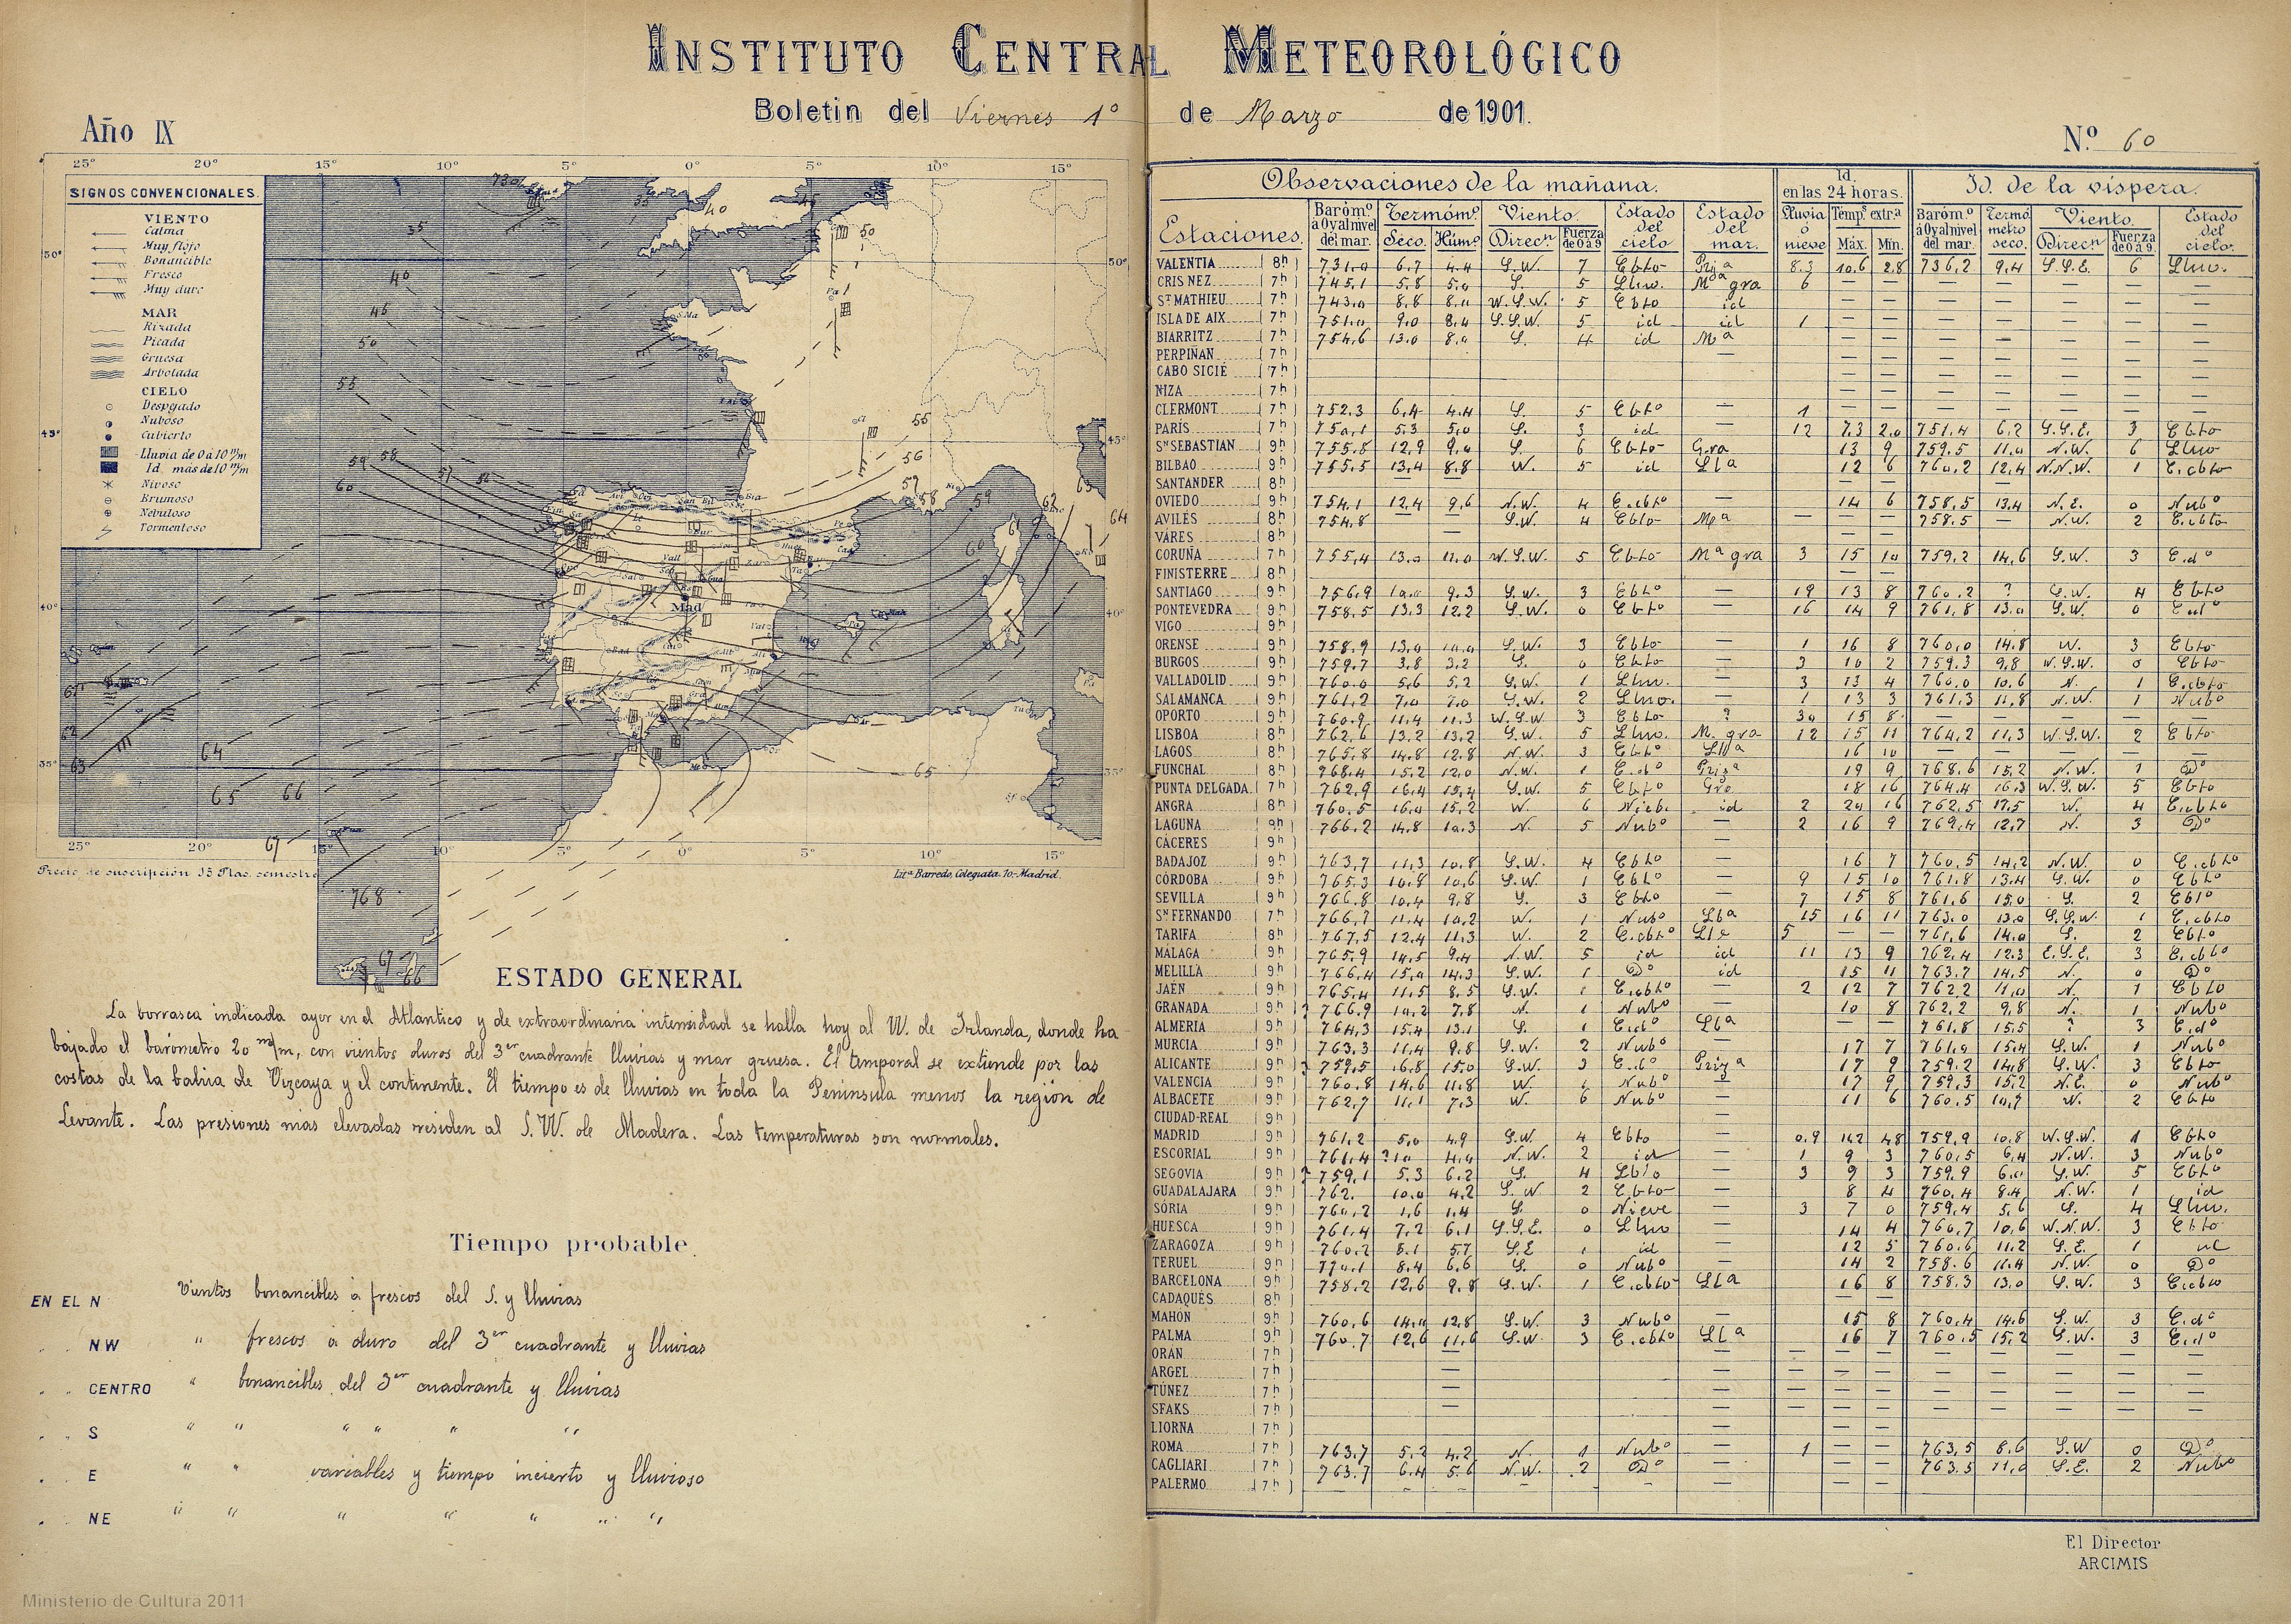 INSTITUTO CENTRAL METEOROLÓGICO
Boletin del Viernes 1º de Marzo de 1901.
Año IX
Nº 60
25° 20° 15° 10° 5° 0° 5° 10° 15°
SIGNOS CONVENCIONALES.
VIENTO
Calma
Muy flojo
Bonancible
Fresco
Muy duro
MAR
Rizada
Picada
Gruesa
Arbolada
CIELO
Despejado
Nuboso
Cubierto
Lluvia de 0 á 10 m/m
Id. más de 10 m/m
Nivoso
Brumoso
Nebuloso
Tormentoso
25° 20° 15° 10° 5° 0° 5° 10° 15°
Precio de suscripción 15 Ptas. semestre
Litª Barredo, Colegiata. 10. Madrid.
768
ESTADO GENERAL
La borrasca indicada ayer en el Atlantico y de extraordinaria intensidad se halla hoy al W. de Irlanda, donde ha
bajado el barómetro 20 m/m, con vientos duros del 3er cuadrante lluvias y mar gruesa. El temporal se extiende por las
costas de la bahia de Vizcaya y el continente. El tiempo es de lluvias en toda la Peninsula menos la región de
Levante. Las presiones más elevadas residen al S.W. de Madera. Las temperaturas son normales.
Tiempo probable.
EN EL N Vientos bonancibles á frescos del S. y lluvias
" " NW " frescos á duro del 3er cuadrante y lluvias
" " CENTRO " bonancibles del 3er cuadrante y lluvias
" " S " " " " " "
" " E " " variables y tiempo incierto y lluvioso
" " NE " " " " " " "
Observaciones de la mañana. Id. en las 24 horas. Id. de la víspera.
Estaciones. Baróm.º á 0 y al nivel del mar. Termómº Seco. Húmº Viento. Direcn Fuerza de 0 á 9 Estado del cielo Estado del mar. Lluvia ó nieve Temp.s extra Máx. Mín. Baróm.º á 0 y al nivel del mar. Termómetro seco. Viento. Direcn Fuerza de 0 á 9. Estado del cielo.
VALENTIA 8h 731,0 6,7 4.4 S.W. 7 Cbto 8.3 10.6 2.8 736,2 9,4 S.S.E. 6 Lluv.
CRIS NEZ 7h 745,1 5,8 5,0 S. 5 Lluv. Mª gra 6
ST MATHIEU 7h 743,0 8,8 8,0 W.S.W. 5 Cbto id
ISLA DE AIX 7h 751,0 9,0 8,4 S.S.W. 5 id id 1
BIARRITZ 7h 754,6 13,0 8,0 S. 4 id Mª
PERPIÑAN 7h
CABO SICIÉ 7h
NIZA 7h
CLERMONT 7h 752.3 6,4 4.4 S. 5 Cbto 1
PARÍS 7h 750,1 5,3 5,0 S. 3 id 12 7,3 2,0 751,4 6,2 S.S.E. 3 Cbto
Sn SEBASTIAN 9h 755,8 12,9 9,0 S. 6 Cbto Gra 13 9 759,5 11,0 N.W. 6 Lluv
BILBAO 9h 755,5 13,4 8.8 W. 5 id Llª 12 6 760,2 12,4 N.N.W. 1 C.cbto
SANTANDER 8h
OVIEDO 9h 754,1 12,4 9,6 N.W. 4 C.cbto 14 6 758,5 13,4 N.E. 0 Nubº
AVILES 8h 754,8 S.W. 4 Cbto 758.5 N.W. 2 C.cbto
VARES 8h
CORUÑA 7h 755,4 13,0 11,0 W.S.W. 5 Cbto Mª gra 3 15 10 759,2 14,6 S.W. 3
FINISTERRE 8h
SANTIAGO 9h 756,9 9.3 S.W. 3 Cbto 19 13 8 760,2 ? S.W. 4 Cbto
PONTEVEDRA 9h 758,5 13,3 12.2 S.W. 0 Cbto 16 14 9 761,8 13,0 S.W. 0
VIGO 9h
ORENSE 9h 758,9 13,0 S.W. 3 Cbto 1 16 8 760,0 14.8 W. 3 Cbto
BURGOS 9h 759,7 3,8 3,2 S. 0 Cbto 3 10 2 759,3 9,8 W.S.W. 0 Cbto
VALLADOLID 9h 760.0 5,6 5,2 S.W. 1 Lluv. 3 13 4 760,0 10,6 N. 1 C.cbto
SALAMANCA 9h 761,2 7,0 7,0 S.W. 2 Lluv. 1 13 3 761,3 11,8 N.W. 1 Nubº
OPORTO 9h 760,9 11,4 11,3 W.S.W 3 Cbto ? 30 15 8
LISBOA 8h 762,6 13,2 13,2 S.W. 5 Lluv. M. gra 12 15 11 764,2 11,3 W.S.W. 2 Cbto
LAGOS 8h 765,8 14,8 12,8 N.W. 3 Cbtº Llª 16 10
FUNCHAL 8h 768,4 15,2 12,0 N.W. 1 Rizª 19 9 768,6 15,2 N.W. 1 Dº
PUNTA DELGADA 7h 762,9 16,4 15,4 S.W. 5 Cbto 18 16 764,4 16,3 W.S.W. 5 Cbto
ANGRA 8h 760,5 16,0 15,2 W. 6 Nieb. id 2 20 16 762,5 17,5 W. 4 C.cbto
LAGUNA 9h 766,2 14,8 10,3 N. 5 Nubº 2 16 9 769,4 12,7 N. 3 Dº
CÁCERES 9h
BADAJOZ 9h 763,7 11,3 10,8 S.W. 4 Cbto 16 7 760,5 14,2 N.W. 0 C.cbto
CÓRDOBA 9h 765,3 10,8 10,6 S.W. 1 Cbto 9 15 10 761,8 13,4 S.W. 0 Cbtº
SEVILLA 9h 766,8 10,4 9,8 S. 3 Cbto 7 15 8 761,6 15,0 S. 2 Cbtº
Sn FERNANDO 7h 766,7 11,4 10,2 W. 1 Nubº Llª 15 16 11 763,0 13,0 S.S.W. 1 C.cbto
TARIFA 8h 767,5 12,4 11,3 W. 2 C.cbtº Llª 5 761,6 14,0 S. 2 Cbto
MALAGA 9h 765,9 14,5 9,4 N.W. 5 id id 11 13 9 762,4 12.3 E.S.E. 3 C.cbto
MELILLA 9h 766,4 15,0 14,3 S.W. 1 Dº id 15 11 763,7 14,5 N. 0 Dº
JAÉN 9h 765,4 11,5 8,5 S.W. 1 C.cbtº 2 12 7 762,2 11,0 N. 1 Cbto
GRANADA 9h ? 766,9 10,2 7,8 N. 1 Nubº 10 8 762,2 9,8 N. 1 Nubº
ALMERIA 9h 764,3 15,4 13.1 S. 1 Llª 761,8 15,5 ? 3
MURCIA 9h 763,3 11,4 9,8 S.W. 2 Nubº 17 7 761,0 15,4 S.W. 1 Nubº
ALICANTE 9h ? 759,5 16,8 15,0 S.W. 3 Rizª 17 9 759,2 14,8 S.W. 3 Cbto
VALENCIA 9h 760,8 14,6 11,8 W. Nubº 17 9 759,3 15,2 N.E. 0 Nubº
ALBACETE 9h 762,7 11,1 7,3 W. 6 Nubº 11 6 760,5 10,7 W. 2 Cbto
CIUDAD-REAL 9h
MADRID 9h 761,2 5,0 4,9 S.W. 4 Cbto 0,9 14,2 4,8 759,9 10,8 W.S.W. 1 Cbto
ESCORIAL 9h 761,4 4,4 N.W. 2 id 1 9 3 760,5 6,4 N.W. 3 Nubº
SEGOVIA 9h ? 759,1 5.3 6.2 S. 4 Cbto 3 9 3 759,9 6,0 S.W. 5 Cbtº
GUADALAJARA 9h 762. 10,0 4,2 S.W 2 Cbto 8 4 760,4 8,4 N.W. 1 id
SÓRIA 9h 760,2 1,6 1,4 S. 0 Nieve 3 7 0 759,4 5,6 S. 4 Lluv.
HUESCA 9h 761,4 7,2 6,1 S.S.E. 0 Lluv 14 4 760,7 10,6 W.N.W. 3 Cbto
ZARAGOZA 9h 760,2 8.1 5,7 S.E 1 id 12 5 760,6 11,2 S.E. 1 id
TERUEL 9h 8,4 6,6 S. 0 Nubº 14 2 758,6 11,4 N.W. 0 Dº
BARCELONA 9h 758,2 12,6 9,8 S.W. 1 C.cbto Llª 16 8 758,3 13,0 S.W. 3 C.cbto
CADAQUÉS 8h
MAHÓN 9h 760,6 14,0 12,8 S.W. 3 Nubº 15 8 760,4 14,6 S.W. 3
PALMA 9h 760,7 12,6 11,6 S.W. 3 C.cbto Llª 16 7 760,5 15,2 S.W. 3
ORÁN 7h
ARGEL 7h
TÚNEZ 7h
SFAKS 7h
LIORNA 7h
ROMA 7h 763,7 5,2 4,2 N. 1 Nubº 1 763,5 8,6 S.W 0 Dº
CAGLIARI 7h 763,7 6,4 5,6 N.W. 2 Dº 763,5 11,0 S.E. 2 Nubº
PALERMO 7h
El Director
ARCIMIS
Ministerio de Cultura 2011